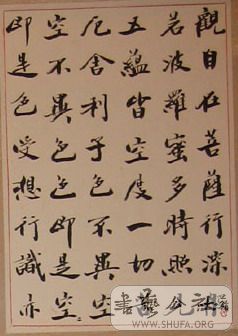 觀自在菩薩行深般
若波羅蜜多時照見
五蘊皆空度一切苦
厄舍利子色不異空
空不異色色即是空
即是色受想行識亦
WWW.SHUFA.ORG